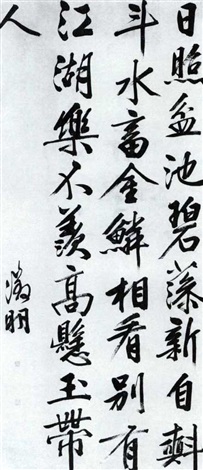 日照盆池碧藻新自斟
斗水畜金鱗相看別有
江湖樂不羨高懸玉帶
人
徵明